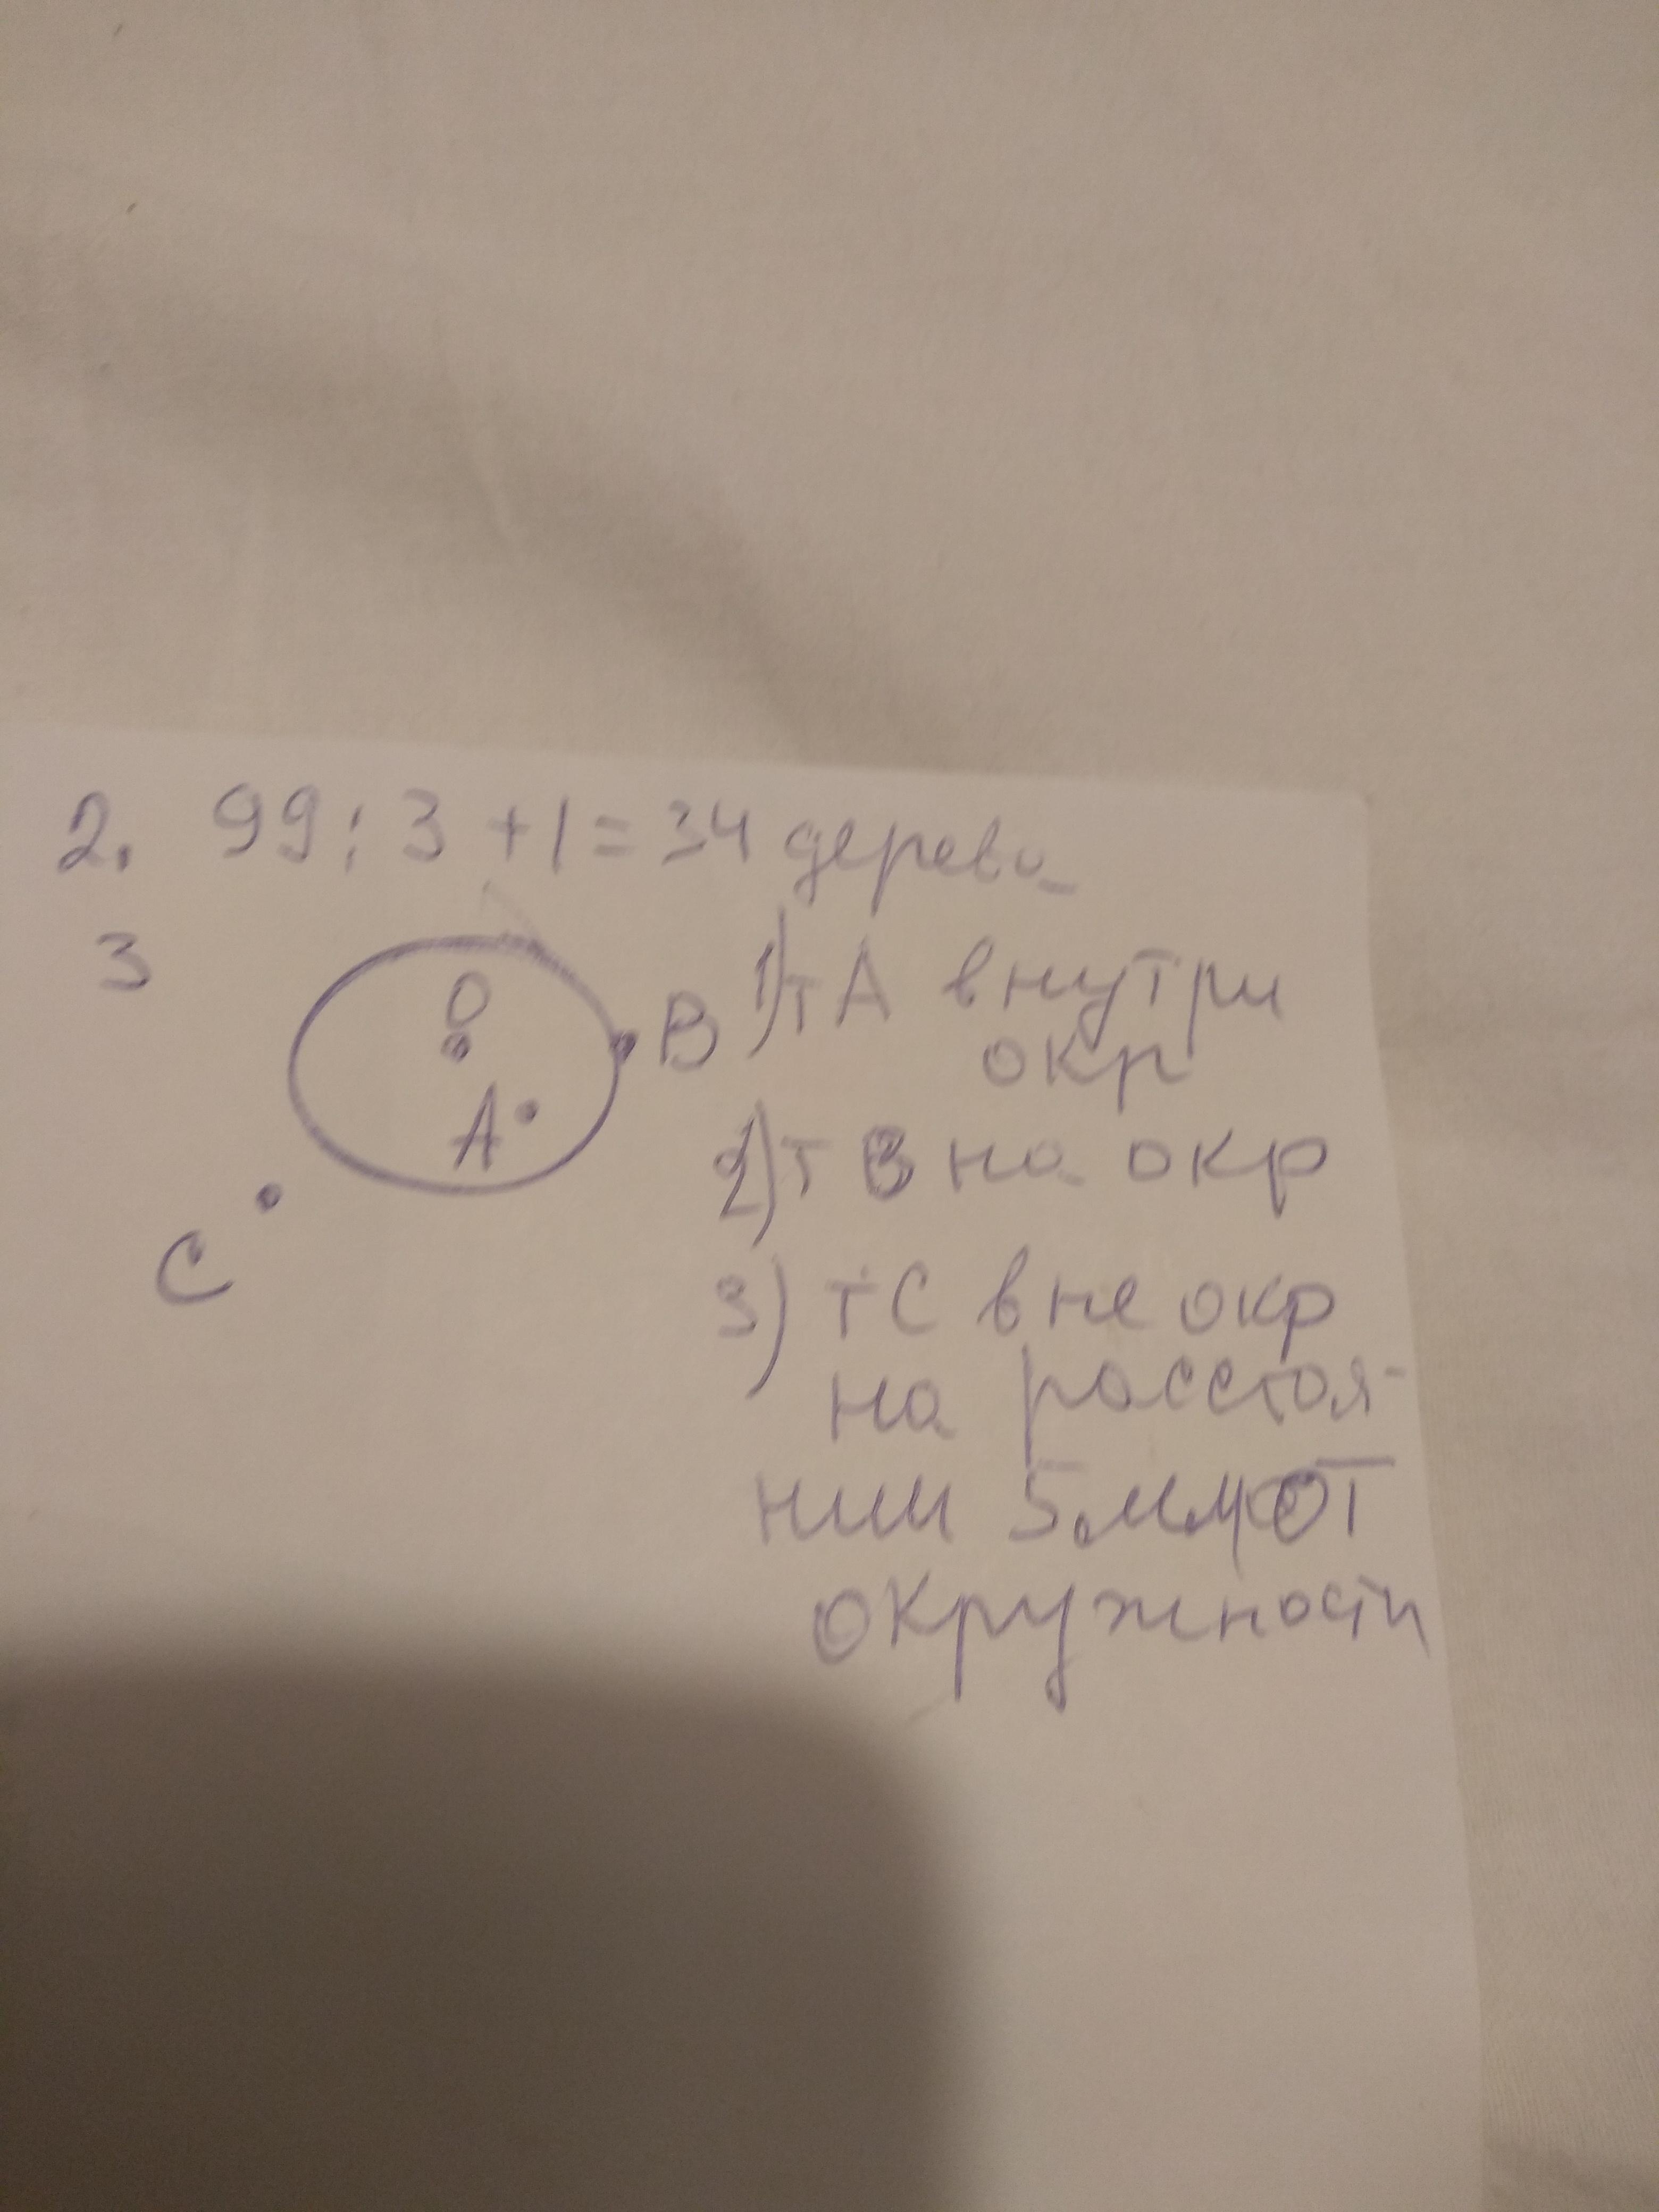 2. 99 : 3 + 1 = 34 дерева
3
О
В
А
С
1) т А внутри
окр
2) т В на окр
3) т С вне окр
на расстоя-
нии 5 мм от
окружности